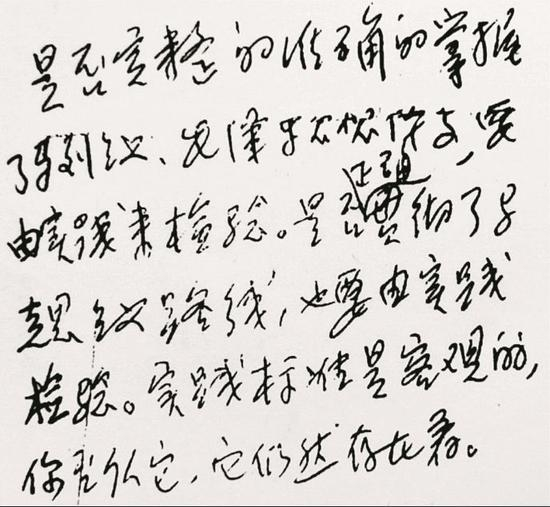 是否完整的准确的掌握
了马列主义、毛泽东思想体系,要
由实践来检验。是否真正贯彻了马
克思主义路线,也要由实践
检验。实践标准是客观的,
你否认它,它仍然存在着。